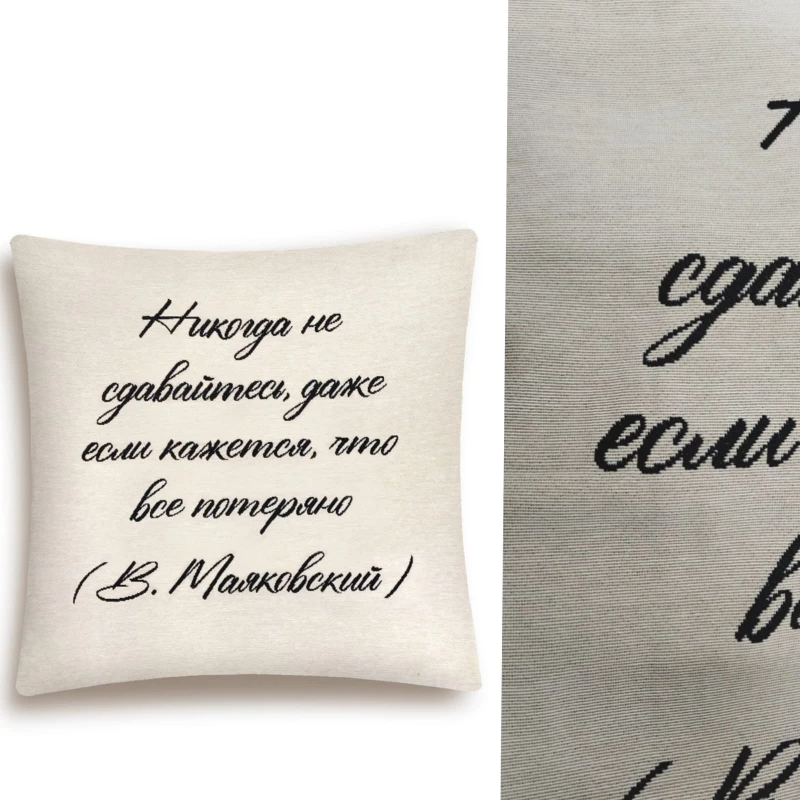 Никогда не
сдавайтесь, даже
если кажется, что
все потеряно
(В. Маяковский)
сда
если
в
(В